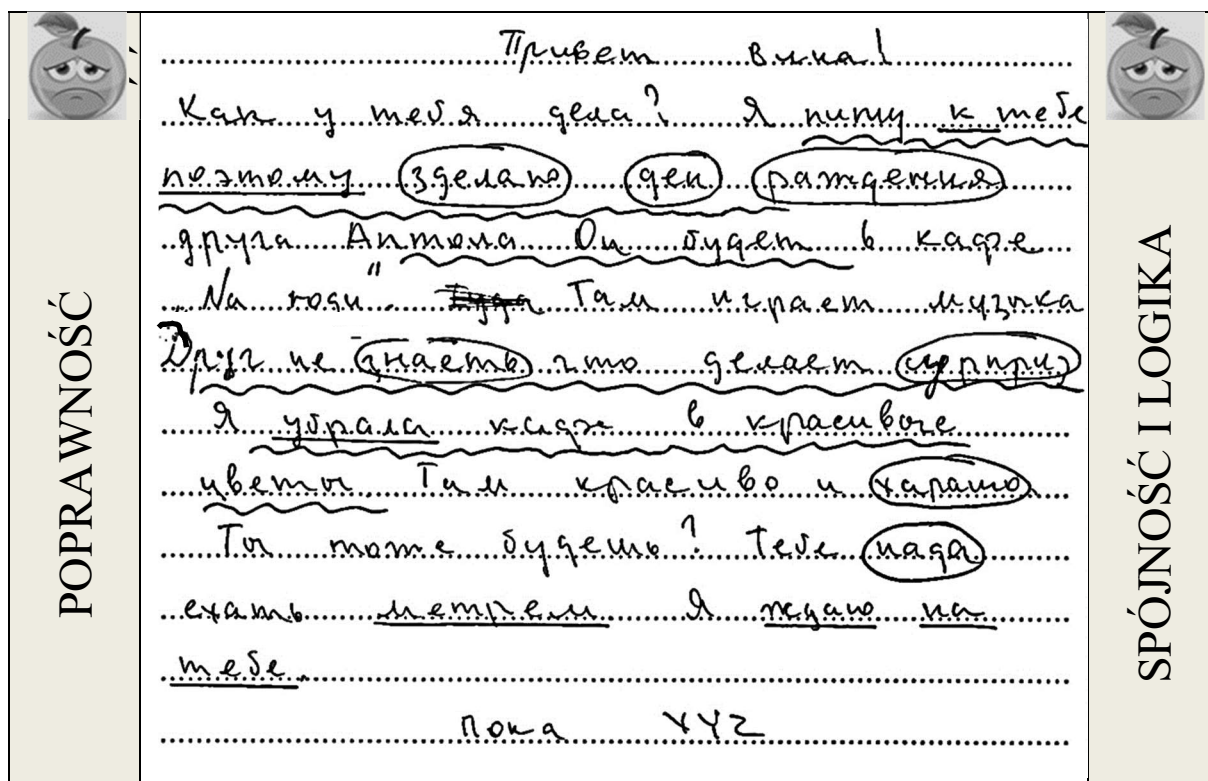 POPRAWNOŚĆ
Привет Вика!
Как у тебя дела? Я пишу к тебе
поэтому зделано ден раждения
друга Антола Он будет в кафе
"Na rogu". Там играет музыка
Друг не знаеть что делает сурприз
Я убрала кафэ в красивые
цветы. Там красиво и харашо.
Ты тоже будешь? Тебе нада
ехать метрем Я ждаю на
тебе.
Пока XYZ
SPÓJNOŚĆ I LOGIKA